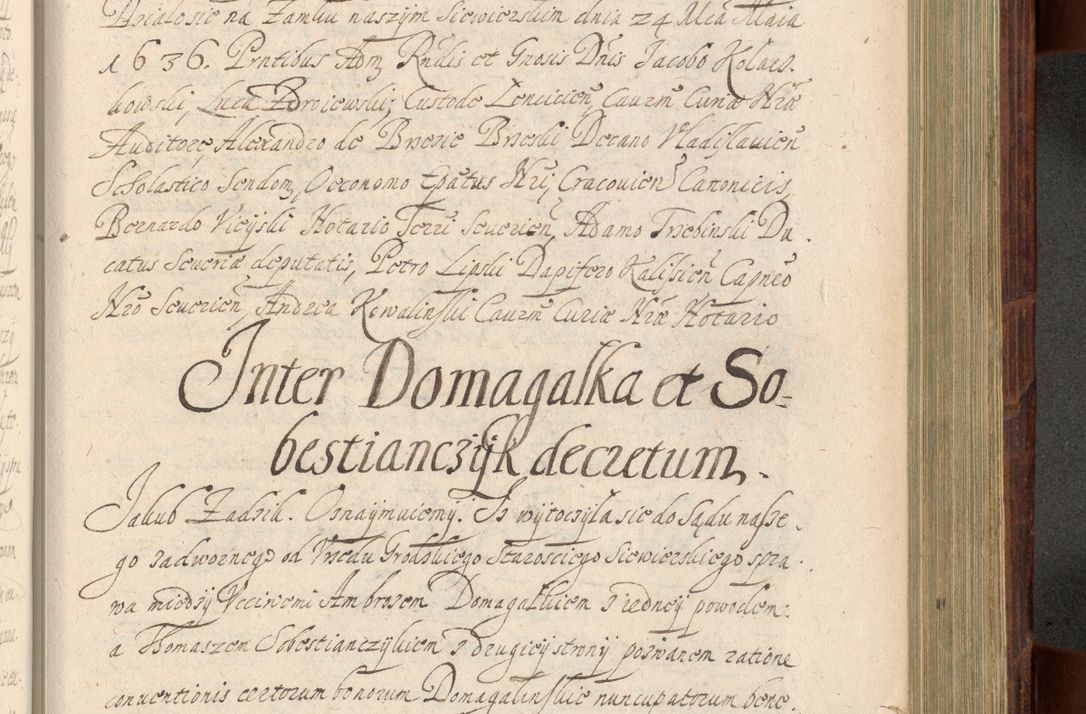 Dzialo sie na Zamku naszym Siewierskim dnia 24 Mca Maia
1636. Prntibus Adm Rndis et Gnosis Dnis Jacobo Kolaes-
kowski, Luca Zdroiewski, Custode Lencicien, Caurm Curiæ Nræ
Auditore, Alexandro de Brzezie Brzeski Decano Vladislauien
Scholastico Sendom, Oeconomo Epatus Nri, Cracouien Canonicis,
Bernardo Vieyski Notario Terri Seuerien, Adamo Trzebinski Du
catus Seueriæ deputatis, Petro Lipski Dapifero Kalisien Capneo
Nro Seuerien, Andrea Kowalinski Caurm Curiæ Nræ Notario
Inter Domagalka et So-
bestianczyk decretum.
Jakub Zadzik. Oznaymuiemy. Iz wytoczyla sie do Sądu nasze-
go zadwornego od Vrzedu Grodzkiego Starosciego Siewierskiego spra-
wa miedzy Vcciwemi Ambrozem Domagalkiem z iedney powodem:
a Thomaszem Sobestianczykiem z drugiey strony pozwanem ratione
conuentionis certorum bonorum Domagalinskie nuncupatorum bene-